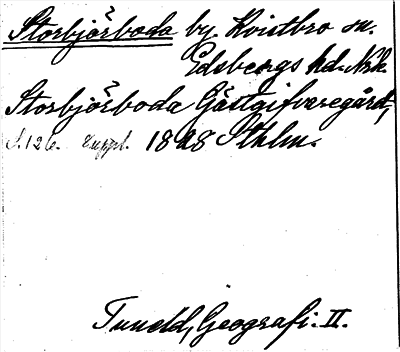 Storbjörboda by. Kvistbro sn.
Edsbergs hd. Nrk.
Storbjörboda Gästgifvaregård,
S. 126. Suppl. 1828 Sthlm.
Tuneld, Geografi. II.